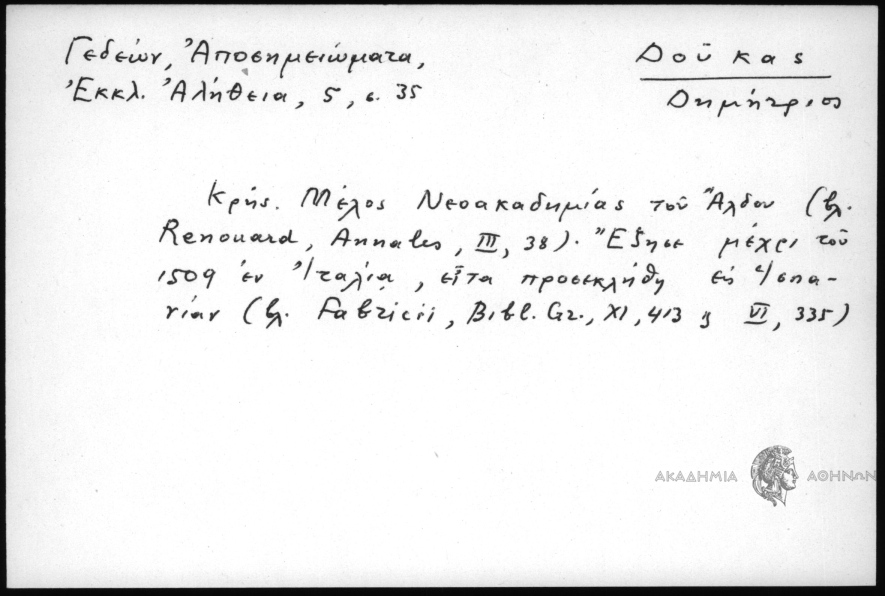 Γεδεών, Ἀποσημειώματα,
Ἐκκλ. Ἀλήθεια, 5, σ. 35
Δοῦκας
Δημήτριος
Κρής. Μέλος Νεοακαδημίας τοῦ Ἄλδου (βλ.
Renouard, Annales, III, 38). Ἔζησε μέχρι τοῦ
1509 ἐν Ἰταλίᾳ, εἶτα προσεκλήθη εἰς Ἱσπα-
νίαν (βλ. Fabricii, Bibl. Gr., XI, 413 ϗ VI, 335)
ΑΚΑΔΗΜΙΑ ΑΘΗΝΩΝ